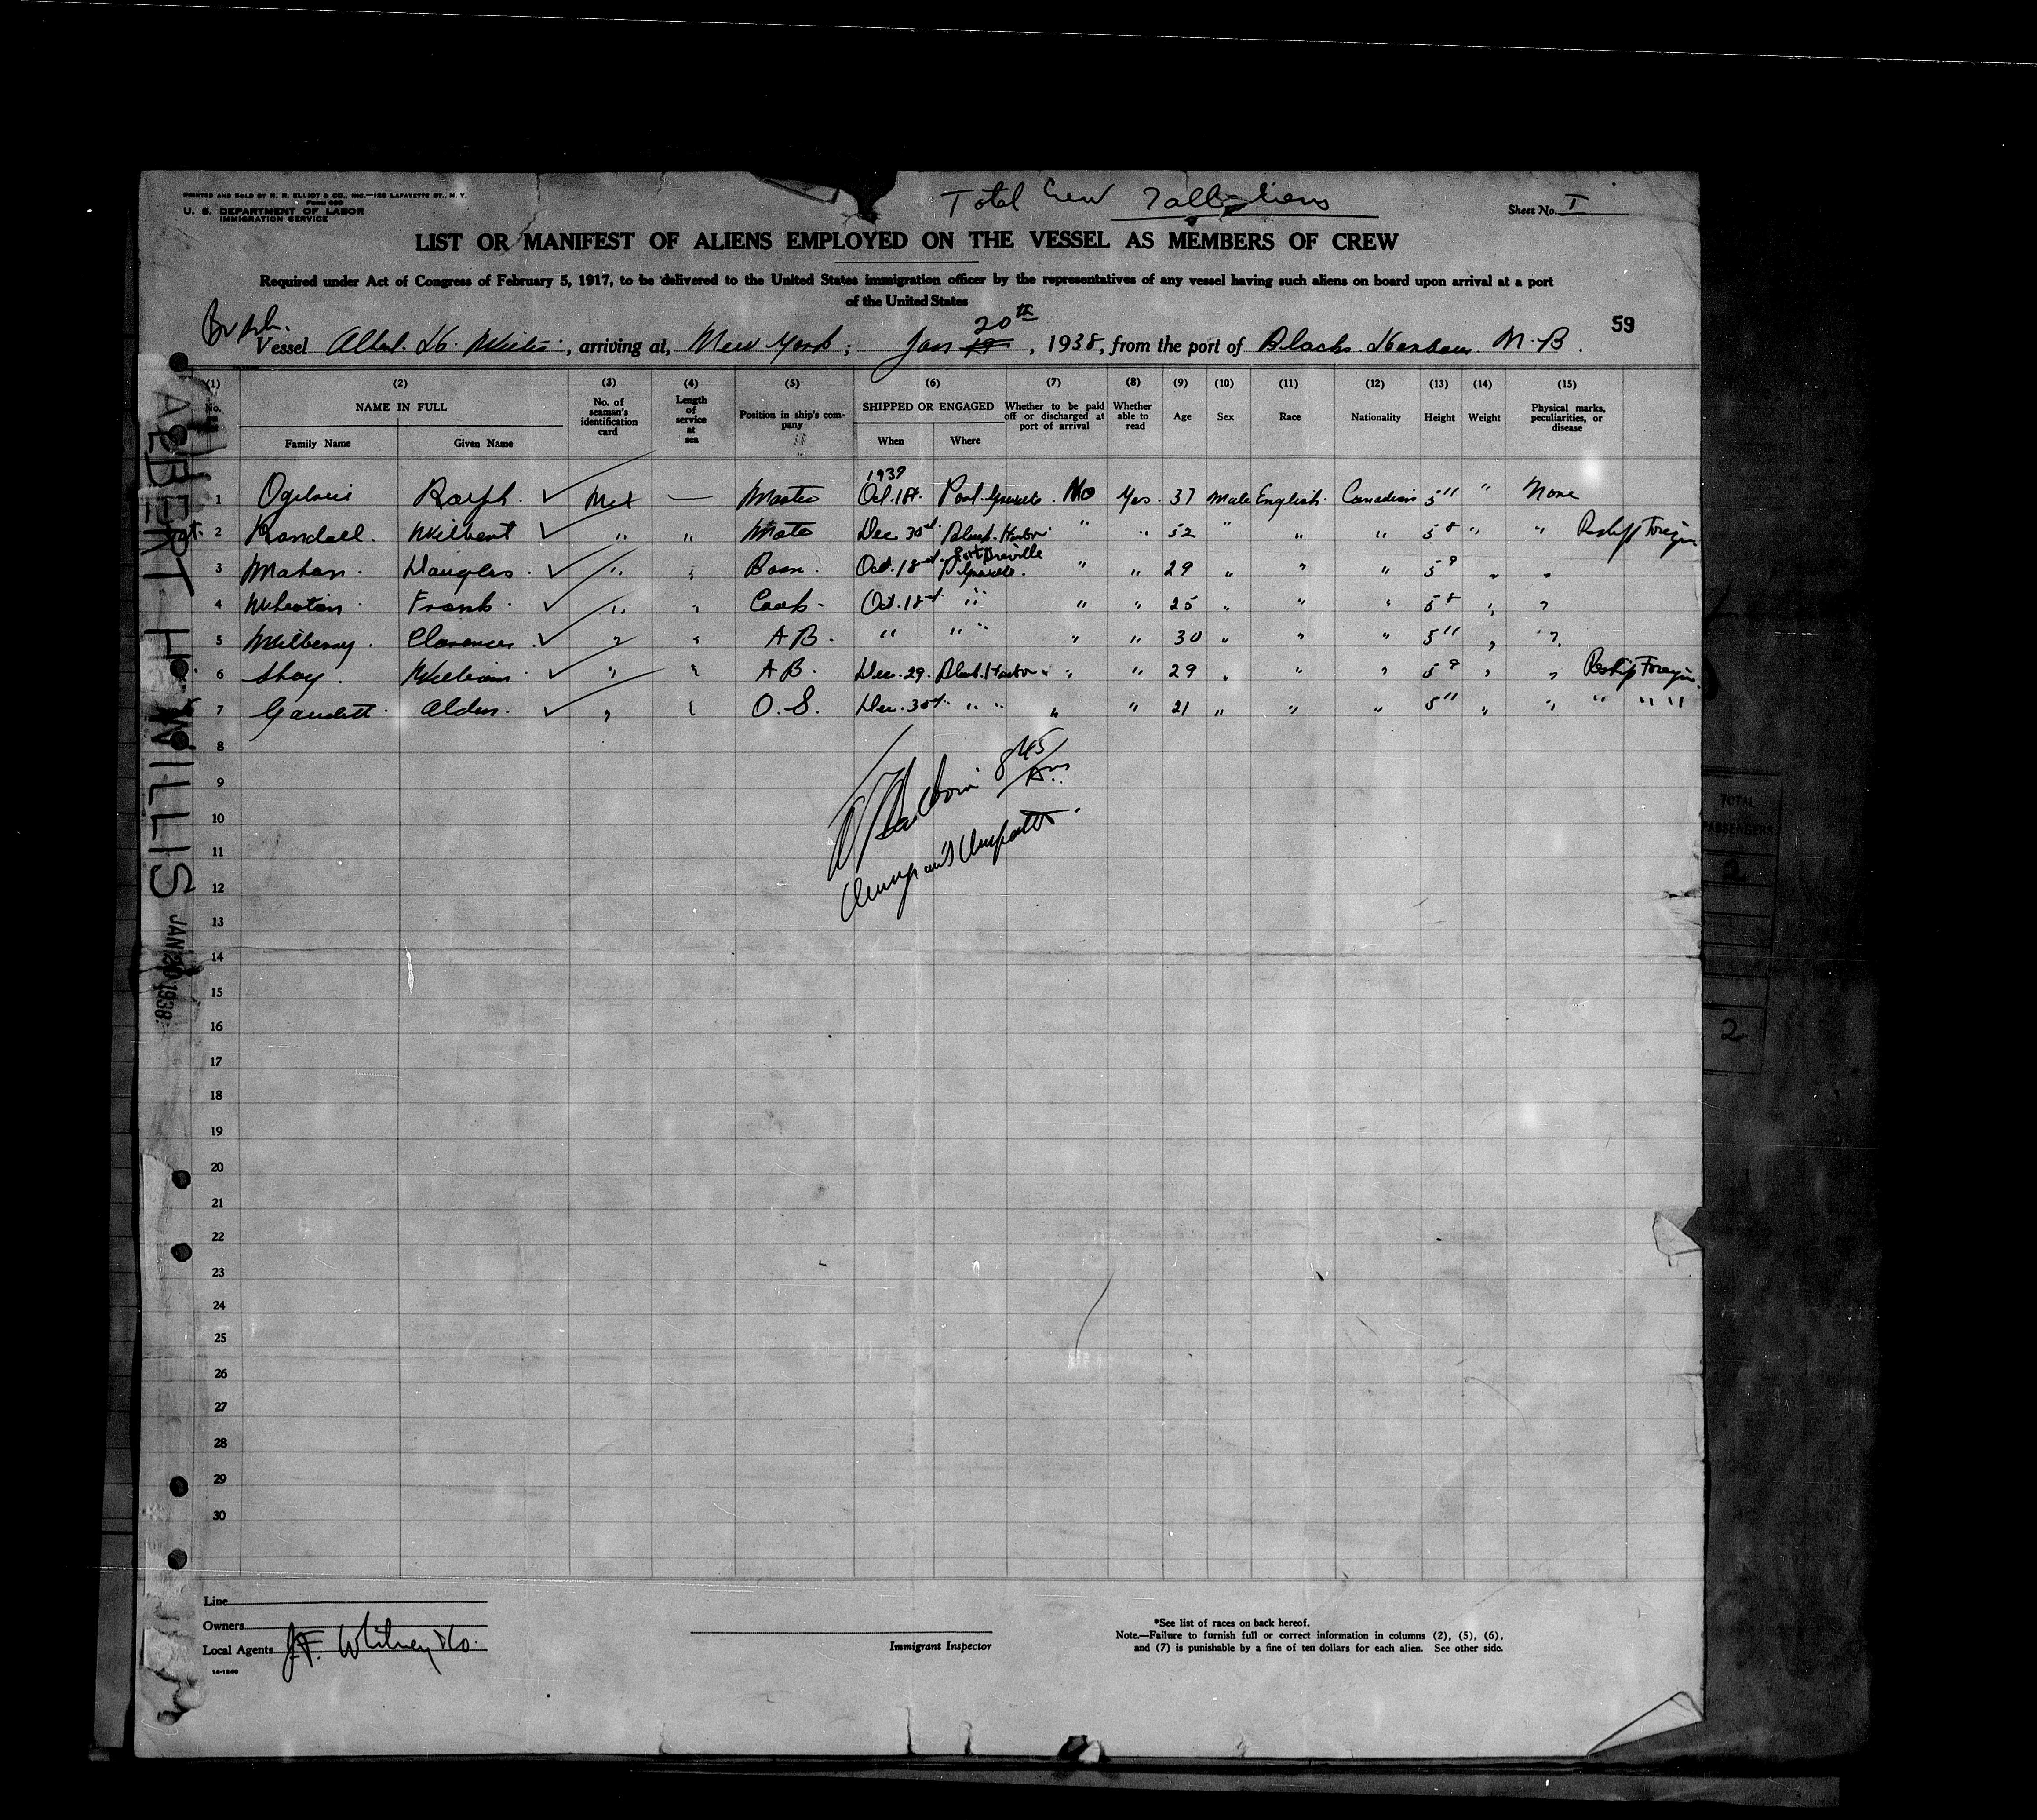 PRINTED AND SOLD BY H. R. ELLIOT & CO., INC.—153 LAFAYETTE ST., N. Y.
U. S. DEPARTMENT OF LABOR
IMMIGRATION SERVICE
Total Crew 7 all aliens
Sheet No. I
LIST OR MANIFEST OF ALIENS EMPLOYED ON THE VESSEL AS MEMBERS OF CREW
Required under Act of Congress of February 5, 1917, to be delivered to the United States immigration officer by the representatives of any vessel having such aliens on board upon arrival at a port
of the United States
59
20th
Vessel Albert H. Willis, arriving at, New York, Jan 19, 1938, from the port of Blacks Harbour N.B.
(1) (2) (3) (4) (5) (6) (7) (8) (9) (10) (11) (12) (13) (14) (15)
No. NAME IN FULL No. of seaman's identification card Length of service at sea Position in ship's company SHIPPED OR ENGAGED Whether to be paid off or discharged at port of arrival Whether able to read Age Sex Race Nationality Height Weight Physical marks, peculiarities, or disease
Family Name Given Name When Where
1937
1 Ogilvie Ralph Master Oct. 18 No Yes 37 Male English Canadian 5 11 " None
2 Randall Wilbert " " Mate Dec 30 Black Harbor " " 52 " " " 5 8 " " Reship Foreign
Port Greville
3 Mahar Douglas " " Bosn. Oct. 18 " " 29 " " " 5 9 " "
4 Wheaton Frank " " Cook Oct. 18 " " " 25 " " " 5 8 " "
5 Milberry Clarence " " A B. " " " " " 30 " " " 5 11 " "
6 Shay William " " A B. Dec. 29 Black Harbor " " 29 " " " 5 9 " " Reship Foreign
7 Gaudett Alden " " O. S. Dec. 30 " " " " 21 " " " 5 11 " " " " "
8
9
10
11
12
13
14
15
16
17
18
19
20
21
22
23
24
25
26
27
28
29
30
845
AM
ALBERT H WILLIS JAN 20 1938
TOTAL
PASSENGERS
2
2
Line
Owners
Local Agents J.F. Whitney & Co.
Immigrant Inspector
*See list of races on back hereof.
Note.—Failure to furnish full or correct information in columns (2), (5), (6),
and (7) is punishable by a fine of ten dollars for each alien. See other side.
14-1240